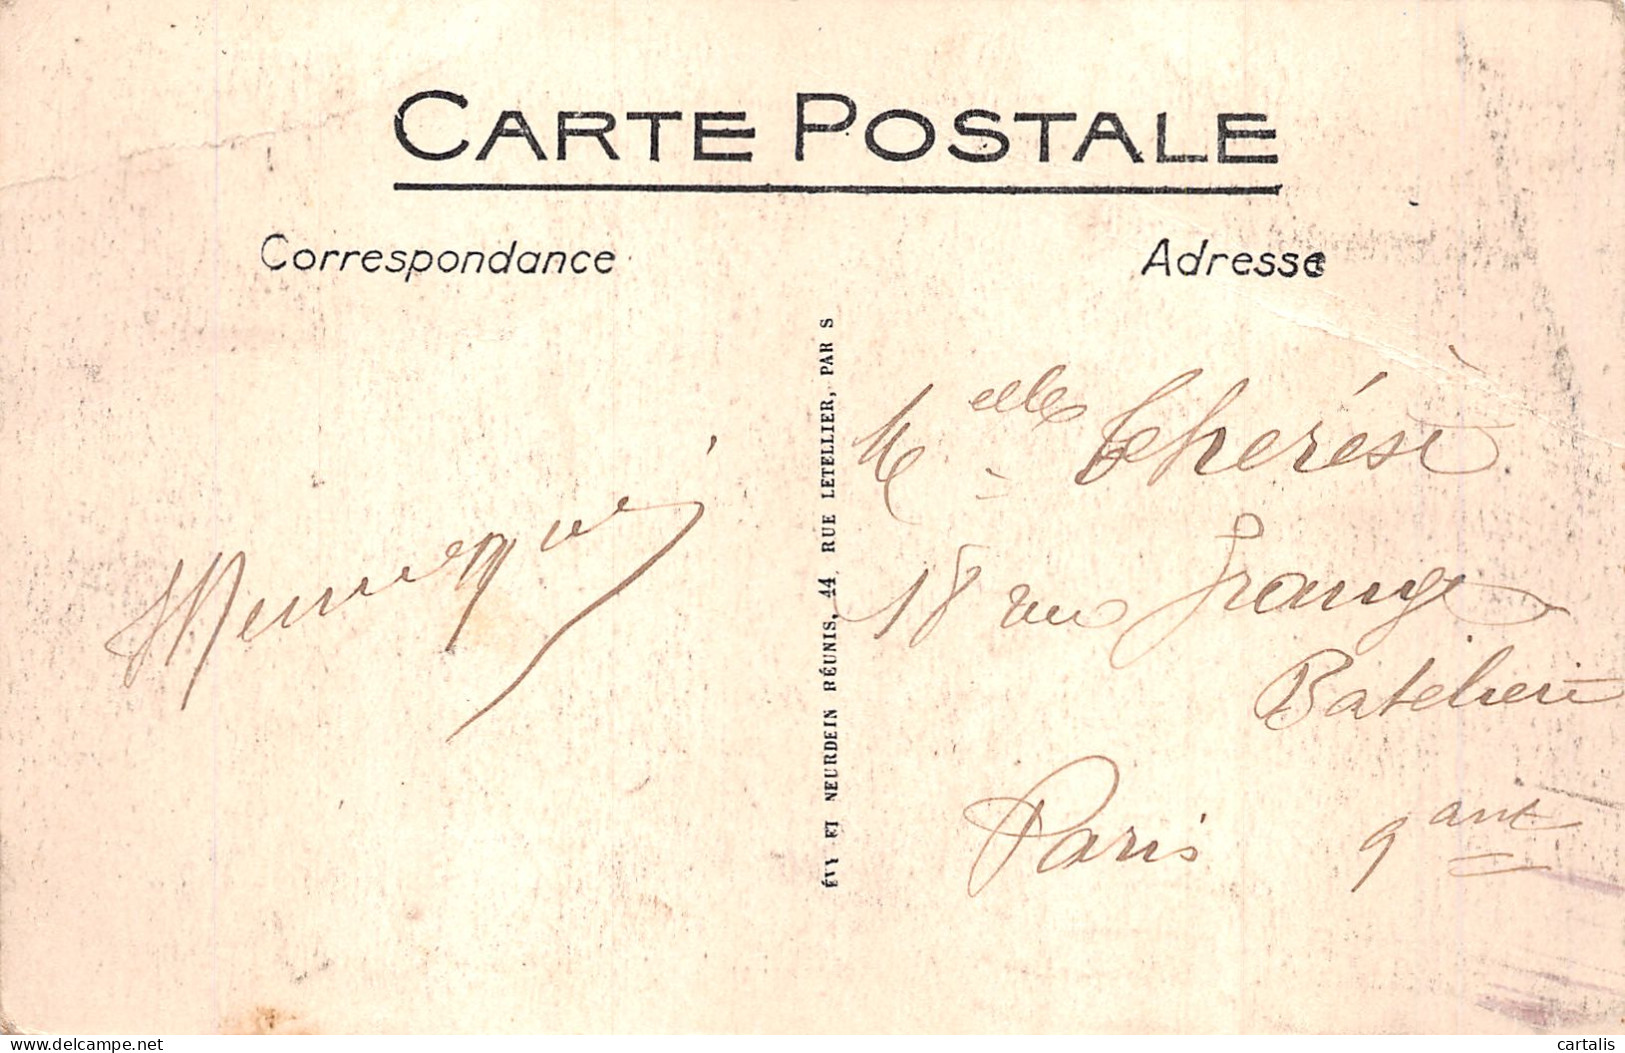 CARTE POSTALE
Correspondance
Adresse
ÉVY ET NEURDEIN RÉUNIS, 44, RUE LETELLIER, PAR S
Melle Thérése
18 rue Grange
Batelière
Paris 9ant
delcampe.net
cartalis